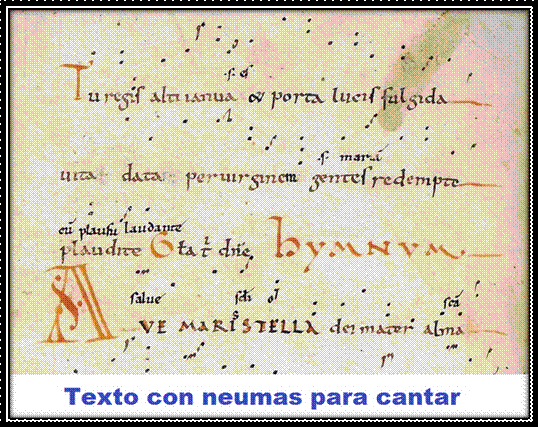 s. es
Tu regis alti ianua & porta lucis fulgida
s. mariā
uita data per uirginem gentes redempte
cū plausu laudante
plaudite Gła t dñe hYMNVM
salue
AVE MARISTELLA dei mater alma
Texto con neumas para cantar